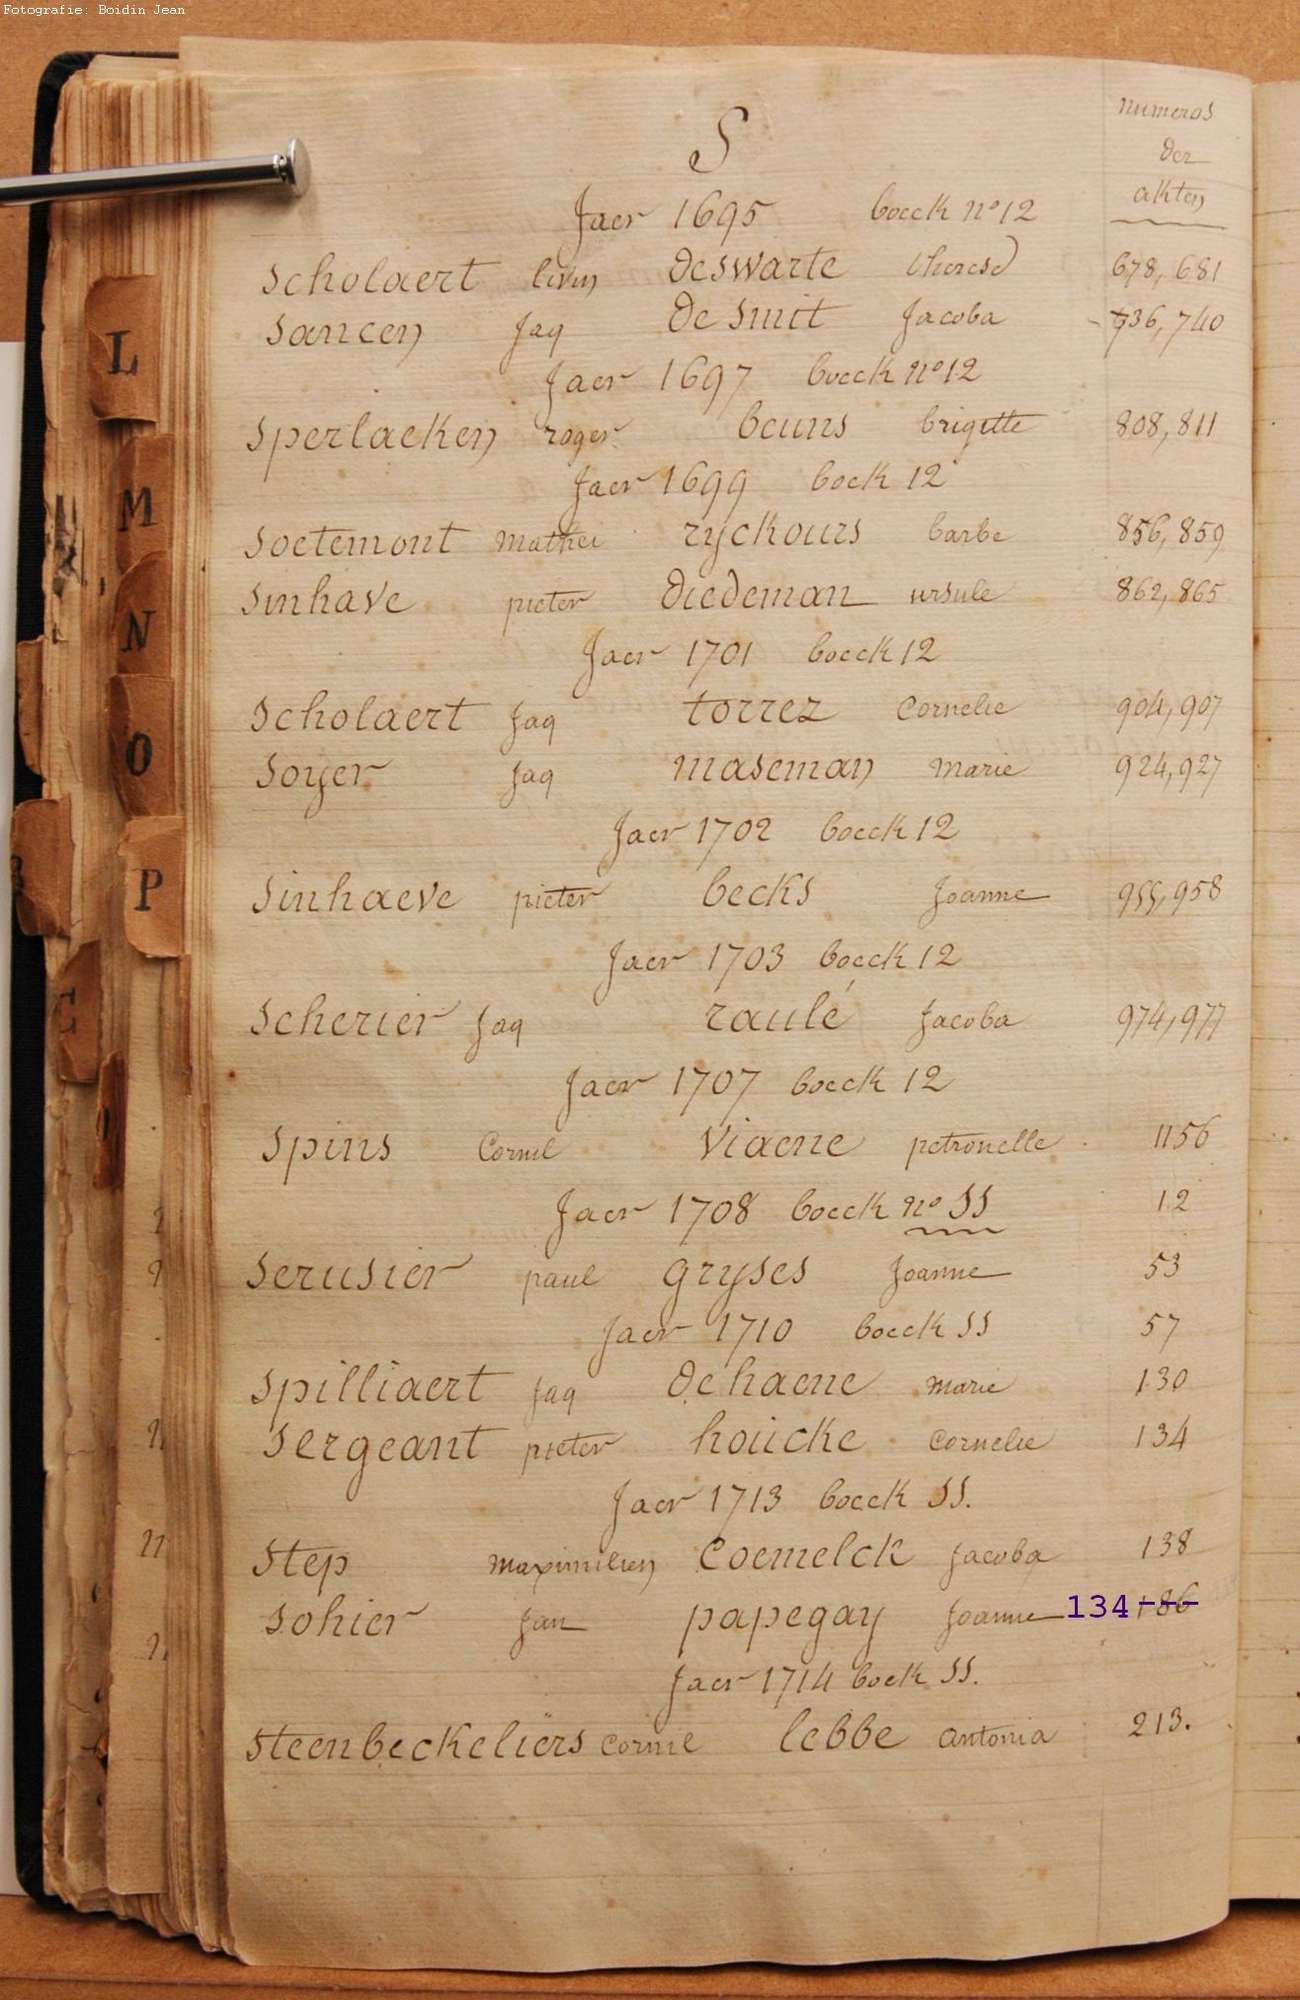 Fotografie: Boidin Jean
numeros
der
akten
S
Jaer 1695 boeck nº 12
Scholaert livin deswarte therese 678, 681
Sancen Jaq de smit Jacoba 736, 740
Jaer 1697 boeck nº 12
Sperlaeken roger beuns brigitte 808, 811
Jaer 1699 boek 12
Soetemont Mathei ryckours barbe 856, 859
Sinhave pieter diedeman ursule 862, 865
Jaer 1701 boeck 12
Scholaert Jaq torrez Cornelie 904, 907
Soyer Jaq maseman Marie 924, 927
Jaer 1702 boeck 12
Sinhaeve pieter becks Joanne 955, 958
Jaer 1703 boeck 12
Scherier Jaq raulé Jacoba 974, 977
Jaer 1707 boeck 12
Spins Cornil Viaene petronelle 1156
Jaer 1708 boeck nº SS 12
Serusier paul gryses Joanne 53
Jaer 1710 boeck SS 57
Spilliaert Jaq dehaene Marie 130
Sergeant pieter houcke Cornelie 134
Jaer 1713 boeck SS.
Step Maximilien Coemelck Jacoba 138
Sohier Jan papegay Joanne 134 186
Jaer 1714 boek SS.
Steenbeckeliers Cornil lebbe Antonia 213.
L
M
N
O
P
E